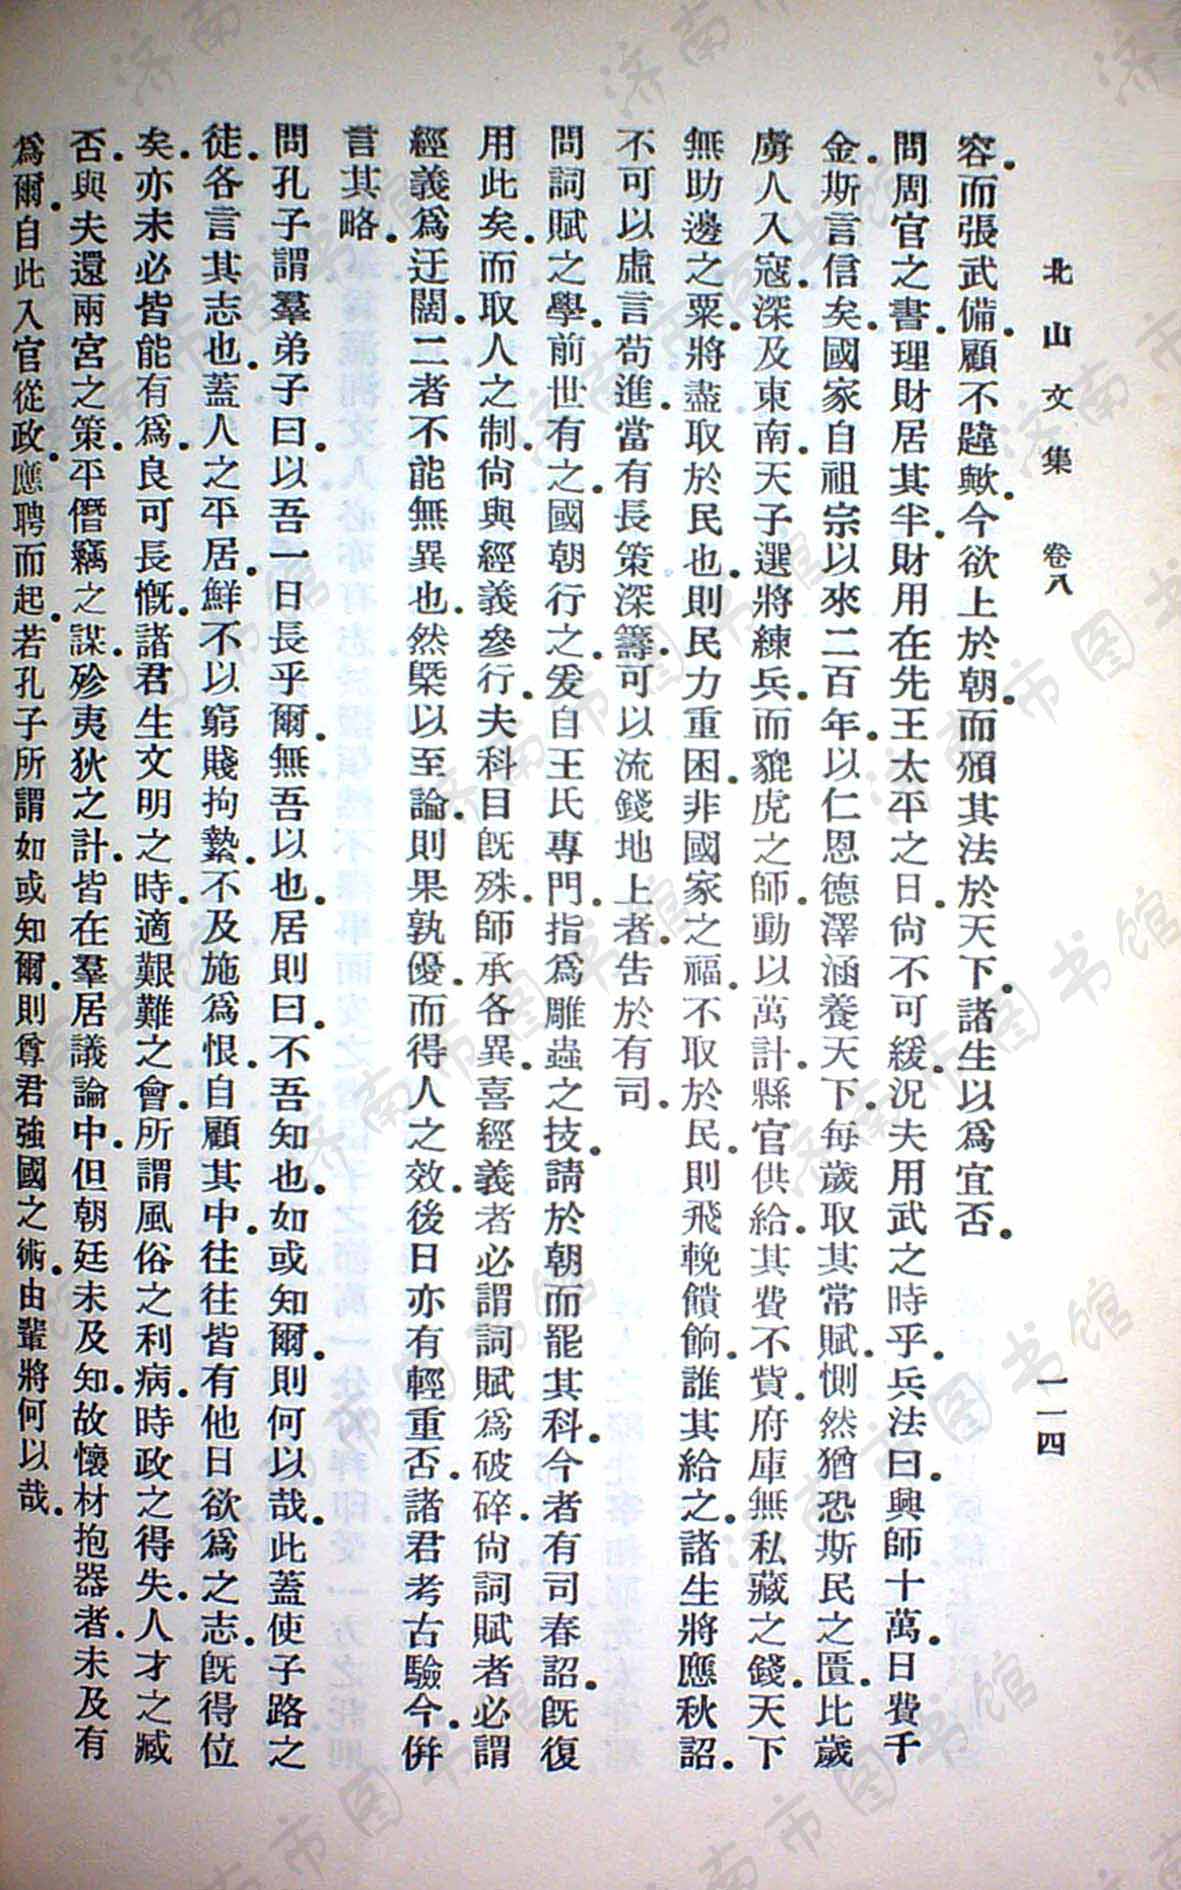 北山文集 卷八 一一四
容。而張武備。顧不韙歟。今欲上於朝。而頒其法於天下。諸生以爲宜否。
問周官之書。理財居其半。財用在先王太平之日。尙不可緩。況夫用武之時乎。兵法曰。興師十萬。日費千
金。斯言信矣。國家自祖宗以來二百年。以仁恩德澤涵養天下。每歲取其常賦。惻然猶恐斯民之匱。比歲
虜人入寇。深及東南。天子選將練兵。而貔虎之師。動以萬計。縣官供給。其費不貲。府庫無私藏之錢。天下
無助邊之粟。將盡取於民也。則民力重困。非國家之福。不取於民。則飛輓饋餉。誰其給之。諸生將應秋詔。
不可以虛言苟進。當有長策深籌。可以流錢地上者。告於有司。
問詞賦之學。前世有之。國朝行之。爰自王氏專門。指爲雕蟲之技。請於朝而罷其科。今者有司春詔。旣復
用此矣。而取人之制。尙與經義參行。夫科目旣殊。師承各異。喜經義者必謂詞賦爲破碎。尙詞賦者必謂
經義爲迂闊。二者不能無異也。然槩以至論。則果孰優。而得人之效。後日亦有輕重否。諸君考古驗今。倂
言其略。
問孔子謂羣弟子曰。以吾一日長乎爾。無吾以也。居則曰。不吾知也。如或知爾。則何以哉。此蓋使子路之
徒。各言其志也。蓋人之平居。鮮不以窮賤拘縶。不及施爲恨。自顧其中。往往皆有他日欲爲之志。旣得位
矣。亦未必皆能有爲。良可長慨。諸君生文明之時。適艱難之會。所謂風俗之利病。時政之得失。人才之臧
否。與夫還兩宮之策。平僭竊之謀。殄夷狄之計。皆在羣居議論中。但朝廷未及知。故懷材抱器者。未及有
爲爾。自此入官從政。應聘而起。若孔子所謂如或知爾。則尊君強國之術。由輩將何以哉。
济南市图书馆